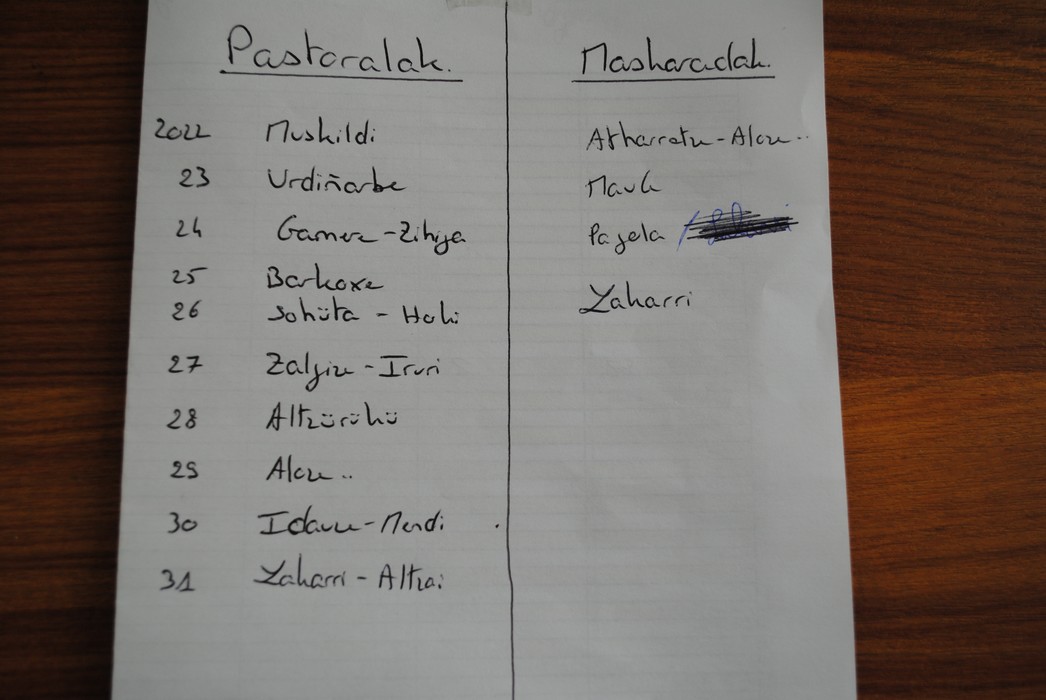 Pastoralak.
2022 Muskildi
23 Urdiñarbe
24 Gamere-Zihiga
25 Barkoxe
26 Sohüta - Hoki
27 Zalgize - Iruri
28 Altzürükü
29 Aloze ..
30 Idauze-Mendi
31 Laharri - Altzai
Maskaradak.
Atharratze-Aloze..
Maule
Pagola /
Laharri